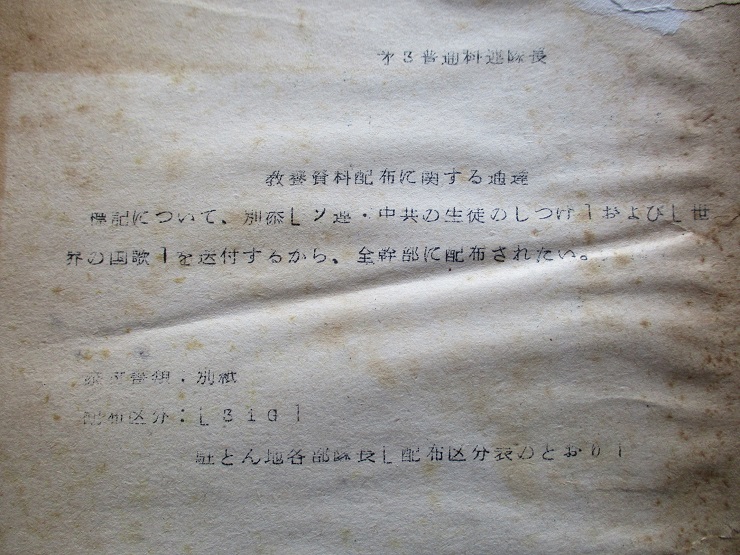 第3普通科連隊長
教養資料配布に関する通達
標記について、別添「ソ連・中共の生徒のしつけ」および「世
界の国歌」を送付するから、全幹部に配布されたい。
書類:別紙
配布区分:「31G」
駐とん地各部隊長「配布区分表のとおり」